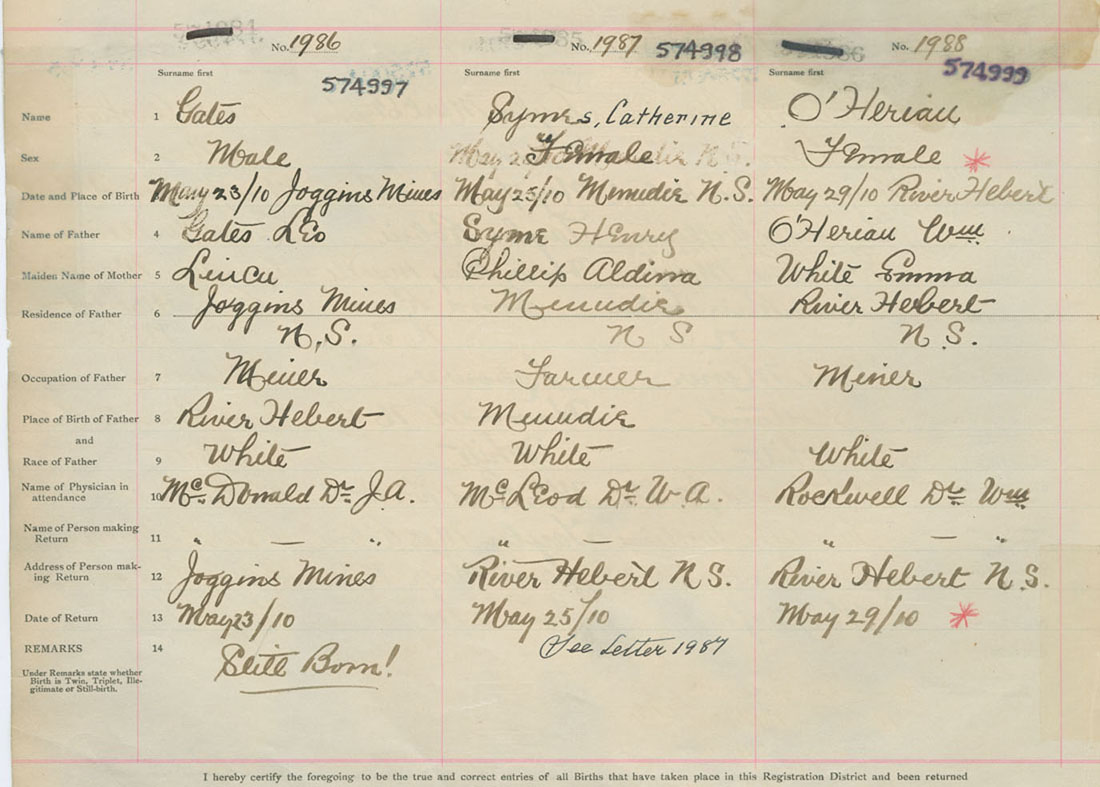 No. 1986 No. 1987 574998 No. 1988
574997 574999
Surname first Surname first Surname first
Name 1 Gates Symes, Catherine O'Heriau
Sex 2 Male Female Female
Date and Place of Birth 3 May 23/10 Joggins Mines May 25/10 Menudie N.S. May 29/10 River Hebert
Name of Father 4 Gates Leo Syme Henry O'Heriau Wm
Maiden Name of Mother 5 Phillip Aldina White Emma
Residence of Father 6 Joggins Mines Menudie River Hebert
N.S. N S N.S.
Occupation of Father 7 Miner Farmer Miner
Place of Birth of Father 8 River Hebert Menudie
and
Race of Father 9 White White White
Name of Physician in
attendance 10 Mc Donald Dr J.A. Mc Leod Dr W.A. Rockwell Dr Wm
Name of Person making
Return 11 " — " " — " — "
Address of Person mak-
ing Return 12 Joggins Mines River Hebert N.S. River Hebert N.S.
Date of Return 13 May 23/10 May 25/10 May 29/10
REMARKS 14 Still Born! See Letter 1987
Under Remarks state whether
Birth is Twin, Triplet, Ille-
gitimate or Still-birth.
I hereby certify the foregoing to be the true and correct entries of all Births that have taken place in this Registration District and been returned